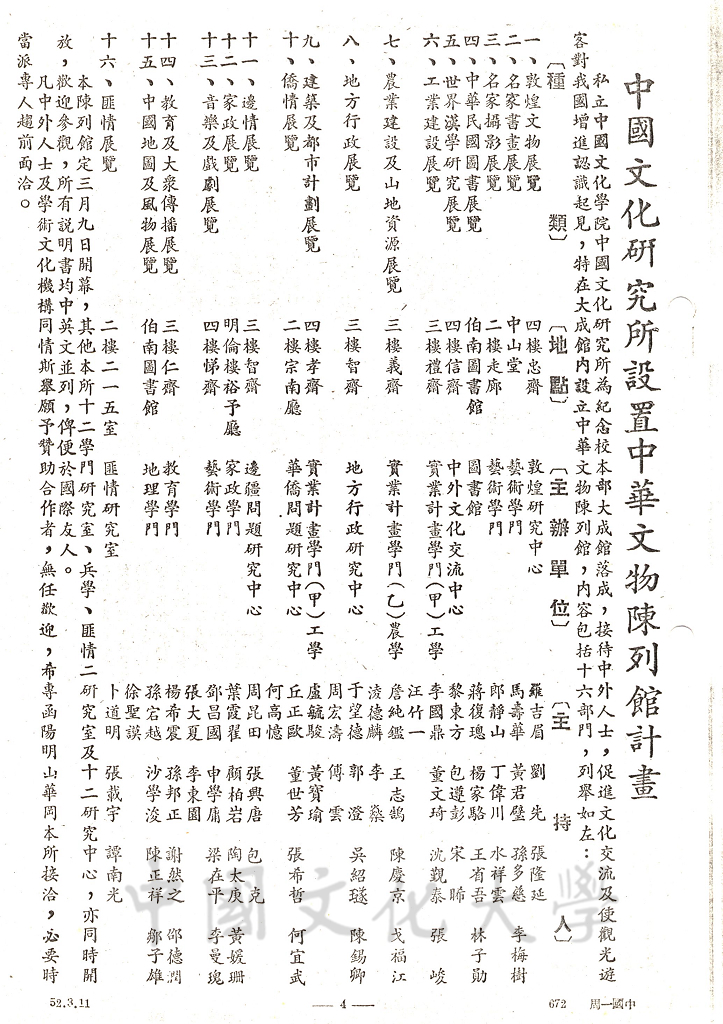 中國文化研究所設置中華文物陳列館計畫
私立中國文化學院中國文化研究所為紀念校本部大成館落成，接待中外人士，促進文化交流及使觀光遊
客對我國增進認識起見，特在大成館內設立中華文物陳列館，內容包括十六部門，列舉如左：
〔種類〕 〔地點〕 〔主辦單位〕 〔主持人〕
一、敦煌文物展覽 四樓忠齋 敦煌研究中心 羅吉眉 劉先 張隆延
二、名家書畫展覽 中山堂 藝術學門 馬壽華 黃君璧 孫多慈 李梅樹
三、名家攝影展覽 二樓走廊 藝術學門 郎靜山 丁偉川 水祥雲
四、中華民國圖書展覽 伯南圖書館 圖書館 蔣復璁 楊家駱 王省吾 林子勛
五、世界漢學研究展覽 四樓信齋 中外文化交流中心 黎東方 包遵彭 宋晞
六、工業建設展覽 三樓禮齋 實業計畫學門（甲）工學 李國鼎 董文琦 沈覲泰 張峻
汪竹一
七、農業建設及山地資源展覽 三樓義齋 實業計畫學門（乙）農學 詹純鑑 王志鵠 陳慶京 戈福江
淩德麟 李燊
八、地方行政展覽 三樓智齋 地方行政研究中心 于望德 郭澄 吳紹璲 陳錫卿
周宏濤 傅雲
九、建築及都市計劃展覽 四樓孝齋 實業計畫學門（甲）工學 盧毓駿 黃寶瑜
十、僑情展覽 二樓宗南廳 華僑問題研究中心 丘正歐 董世芳 張希哲 何宜武
何高憶
十一、邊情展覽 三樓智齋 邊疆問題研究中心 周昆田 張興唐 包克
十二、家政展覽 明倫樓裕予廳 家政學門 葉霞翟 顏柏岩 陶太庚 黃媛珊
十三、音樂及戲劇展覽 四樓悌齋 藝術學門 鄧昌國 申學庸 梁在平 李曼瑰
張大夏 李東園
十四、教育及大衆傳播展覽 三樓仁齋 教育學門 楊希震 孫邦正 謝然之 邵德潤
十五、中國地圖及風物展覽 伯南圖書館 地理學門 孫宕越 沙學浚 陳正祥 鄒子雄
徐聖謨
十六、匪情展覽 二樓二一五室 匪情研究室 卜道明 張載宇 譚南光
本陳列館定三月九日開幕，其他本所十二學門研究室、兵學、匪情二研究室及十二研究中心，亦同時開
放，歡迎參觀，所有說明書均中英文並列，俾便於國際友人。
凡中外人士及學術文化機構同情斯舉願予贊助合作者，無任歡迎，希專函陽明山華岡本所接洽，必要時
當派專人趨前面洽。
中國文化大學
52.3.11
— 4 —
672 周一國中